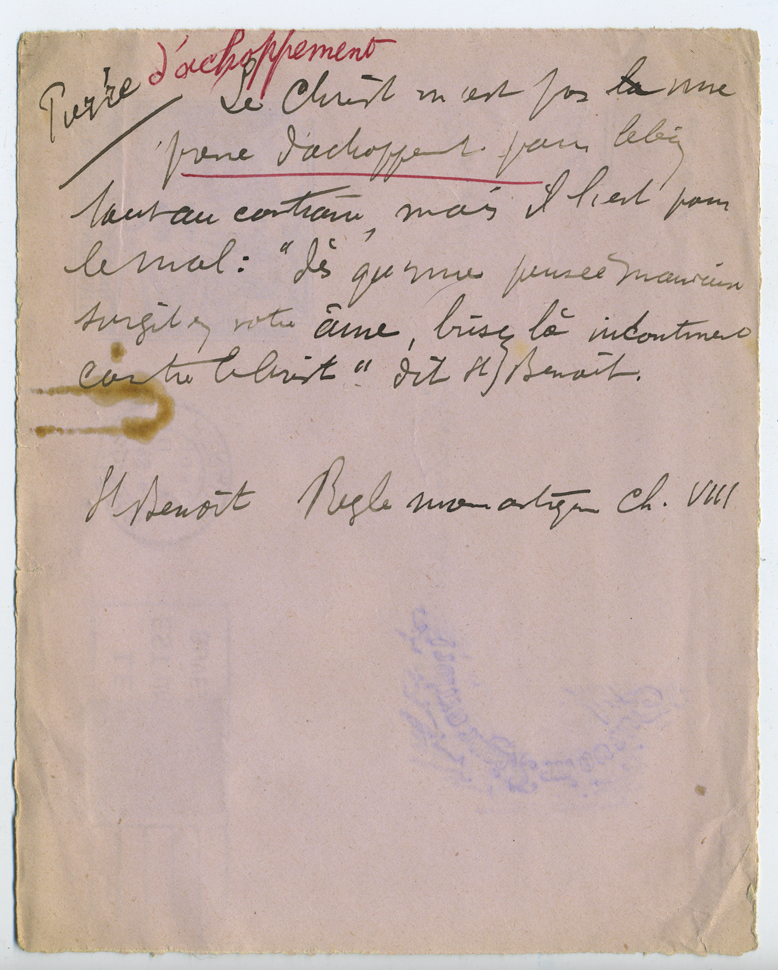 Pierre d'achoppement
Le Christ n'est pas là une
pierre d'achoppement pour le bien
tout au contraire, mais il l'est pour
le mal : "dès qu'une pensée mauvaise
surgit en votre âme, brisez là incontinent
contre le Christ" dit St Benoît.
St Benoît Règle monastique Ch. VIII